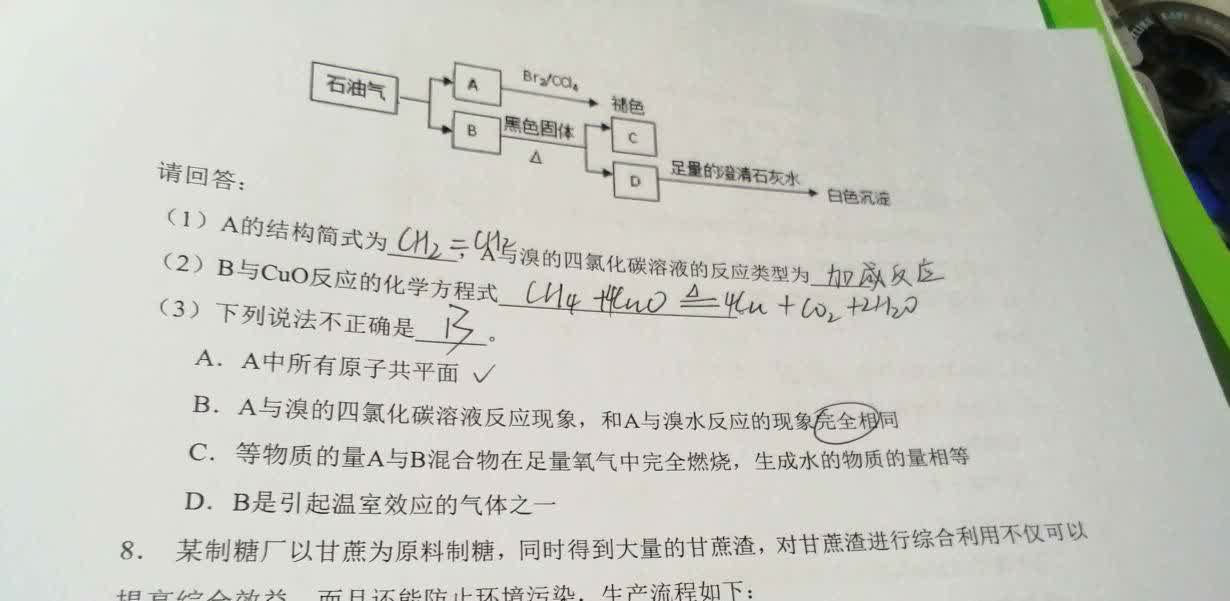 石油气
A
Br₂/CCl₄
褪色
B
黑色固体
△
C
D
足量的澄清石灰水
白色沉淀
请回答：
（1）A的结构简式为 CH₂=CH₂，A与溴的四氯化碳溶液的反应类型为 加成反应
（2）B与CuO反应的化学方程式 CH₄+4CuO △= 4Cu+CO₂+2H₂O
（3）下列说法不正确是 B 。
A．A中所有原子共平面 ✓
B．A与溴的四氯化碳溶液反应现象，和A与溴水反应的现象完全相同
C．等物质的量A与B混合物在足量氧气中完全燃烧，生成水的物质的量相等
D．B是引起温室效应的气体之一
8．某制糖厂以甘蔗为原料制糖，同时得到大量的甘蔗渣，对甘蔗渣进行综合利用不仅可以
提高综合效益，而且还能防止环境污染，生产流程如下：